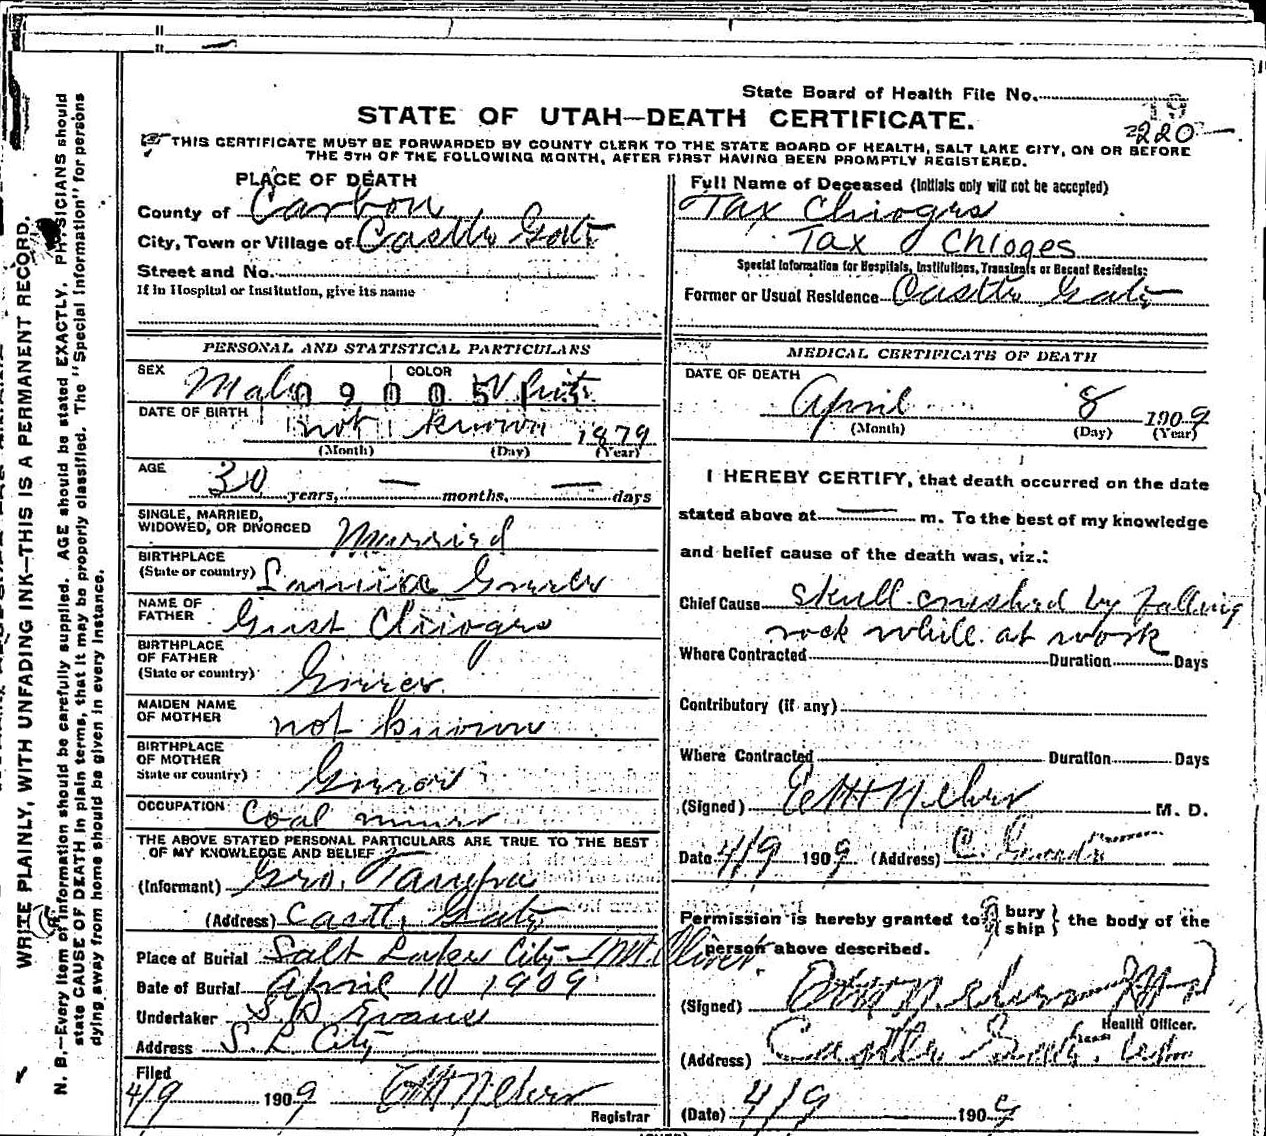 State Board of Health File No.
19
220
STATE OF UTAH—DEATH CERTIFICATE.
THIS CERTIFICATE MUST BE FORWARDED BY COUNTY CLERK TO THE STATE BOARD OF HEALTH, SALT LAKE CITY, ON OR BEFORE
THE 5TH OF THE FOLLOWING MONTH, AFTER FIRST HAVING BEEN PROMPTLY REGISTERED.
PLACE OF DEATH
County of Carbon
City, Town or Village of Castle Gate
Street and No.
If in Hospital or Institution, give its name
PERSONAL AND STATISTICAL PARTICULARS
SEX Male COLOR White
0900051
DATE OF BIRTH not known 1879
(Month) (Day) (Year)
AGE 30 years, — months, — days
SINGLE, MARRIED,
WIDOWED, OR DIVORCED Married
BIRTHPLACE
(State or country) Greece
NAME OF
FATHER Gust Chioges
BIRTHPLACE
OF FATHER
(State or country) Greece
MAIDEN NAME
OF MOTHER not known
BIRTHPLACE
OF MOTHER
State or country) Greece
OCCUPATION Coal miner
THE ABOVE STATED PERSONAL PARTICULARS ARE TRUE TO THE BEST
OF MY KNOWLEDGE AND BELIEF
(Informant) Geo.
(Address) Castle Gate
Place of Burial Salt Lake City - Mt. Olivet
Date of Burial April 10 1909
Undertaker S. D. Evans
Address S. L. City
Filed
4/9 1909
Registrar
Full Name of Deceased (Initials only will not be accepted)
Tax Chioges
Tax Chioges
Special Information for Hospitals, Institutions, Transients or Recent Residents:
Former or Usual Residence Castle Gate
MEDICAL CERTIFICATE OF DEATH
DATE OF DEATH
April 8 1909
(Month) (Day) (Year)
I HEREBY CERTIFY, that death occurred on the date
stated above at — m. To the best of my knowledge
and belief cause of the death was, viz.:
Chief Cause skull crushed by falling
rock while at work
Where Contracted Duration Days
Contributory (if any)
Where Contracted Duration Days
(Signed) M. D.
Date 4/9 1909 (Address) C. Gate
Permission is hereby granted to { bury ship } the body of the
person above described.
(Signed)
Health Officer.
(Address) Castle Gate, Utah
(Date) 4/9 1909
WRITE PLAINLY, WITH UNFADING INK—THIS IS A PERMANENT RECORD.
N. B.—Every item of information should be carefully supplied. AGE should be stated EXACTLY. PHYSICIANS should
state CAUSE OF DEATH in plain terms, that it may be properly classified. The "Special Information" for persons
dying away from home should be given in every instance.